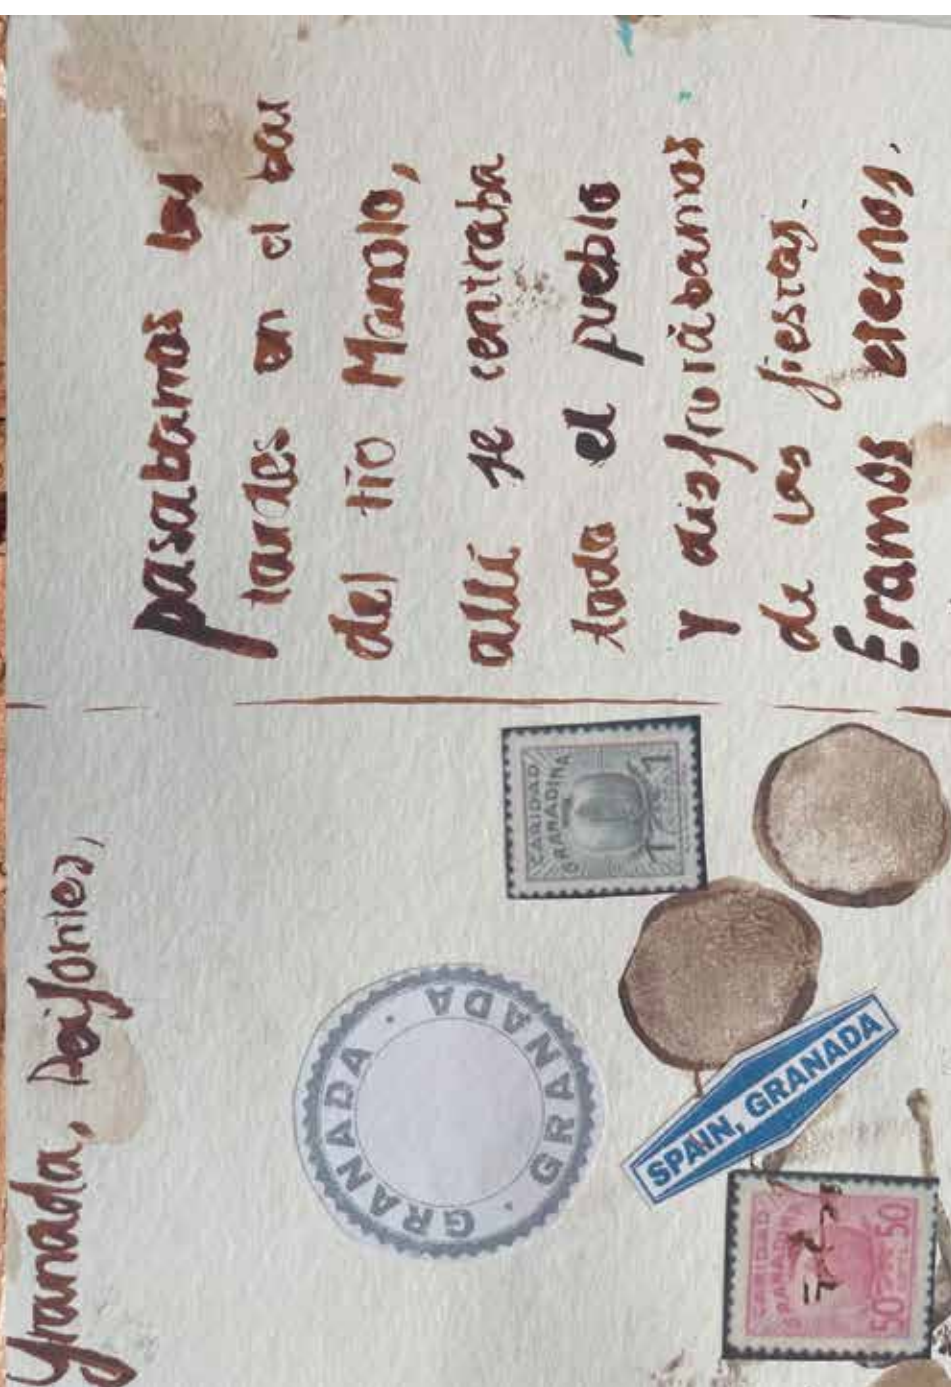 Granada, Deifontes,
pasabamos las
tardes en el bar
del tío Manolo,
allí se centraba
todo el pueblo
Y disfrutábamos
de las fiestas.
Eramos eternos.
CARIDAD
GRANADINA
1 1
GRANADA · GRANADA ·
SPAIN, GRANADA
CARIDAD
GRANADINA
50 50